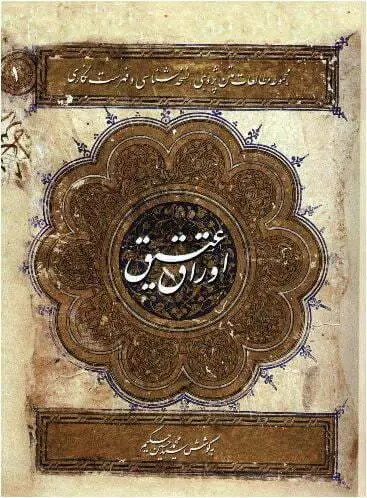 مجموعه مطالعات متن پژوهی، نسخه شناسی و فهرست نگاری
۱
اوراق عتیق
به کوشش سید محمد حسین حکیم